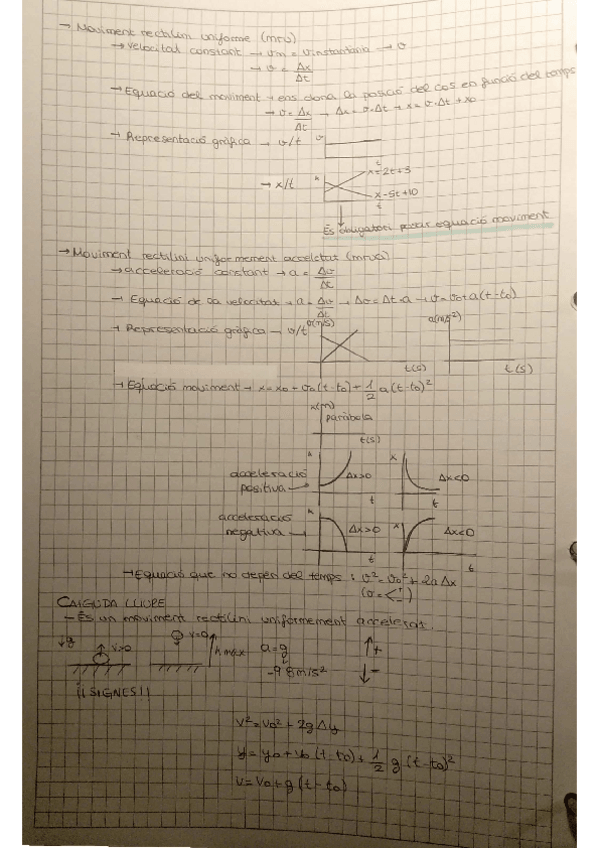 → Moviment rectilini uniforme (mru)
→ Velocitat constant → vm = vinstantània → v
→ v = Δx/Δt
→ Equació del moviment → ens dona la posició del cos en funció del temps
→ v = Δx/Δt → Δx = v·Δt → x = v·Δt + x0
→ Representació gràfica → v/t v
t
→ x/t x x=2t+3
x-5t+10
t
És obligatori posar equació moviment
→ Moviment rectilini uniformement accelerat (mrua)
→ acceleració constant → a = Δv/Δt
→ Equació de la velocitat → a = Δv/Δt → Δv = Δt·a → v = v0+a(t-t0)
→ Representació gràfica → v/t v(m/s) a(m/s²)
t(s) t(s)
→ Equació moviment → x = x0 - v0(t-t0) + 1/2 a(t-t0)²
x(m)
paràbola
t(s)
acceleració positiva → Δx>0 x Δx<0
t t
acceleració negativa → Δx>0 x Δx<0
t t
→ Equació que no depèn del temps: v² = v0² + 2aΔx
(v = <+-)
CAIGUDA LLIURE
- És un moviment rectilini uniformement accelerat.
↓g ↑ v>0 v=0 ↑ h max a=g ↑+
-9'8m/s² ↓-
¡¡SIGNES!!
v² = v0² + 2gΔy
y = y0 + v0(t-t0) + 1/2 g(t-t0)²
v = v0 + g(t-t0)